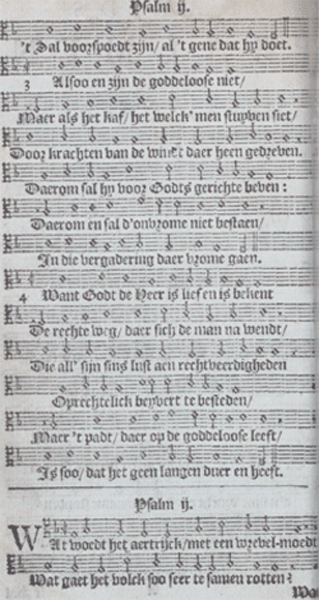 Psalm ij.
't Sal voorspoedt zijn/ al 't gene dat hy doet.
3 Alsoo en zijn de goddeloose niet/
Maer als het kaf/ het welck' men stuyven siet/
Door krachten van de windt daer heen gedreven.
Daerom sal hy voor Godts gerichte beven:
Daerom en sal d'onvrome niet bestaen/
In die vergadering daer vrome gaen.
4 Want Godt de Heer is lief en is bekent
De rechte weg/ daer sich de man na wendt/
Die all' sijn sins lust aen rechtveerdigheden
Oprechtelick beyvert te besteden/
Maer 't padt/ daer op de goddeloose leeft/
Is soo/ dat het geen langen duer en heeft.
Psalm ij.
WAt woedt het aertrijck/ met een wrevel-moedt
Wat gaet het volck soo seer te samen rotten?